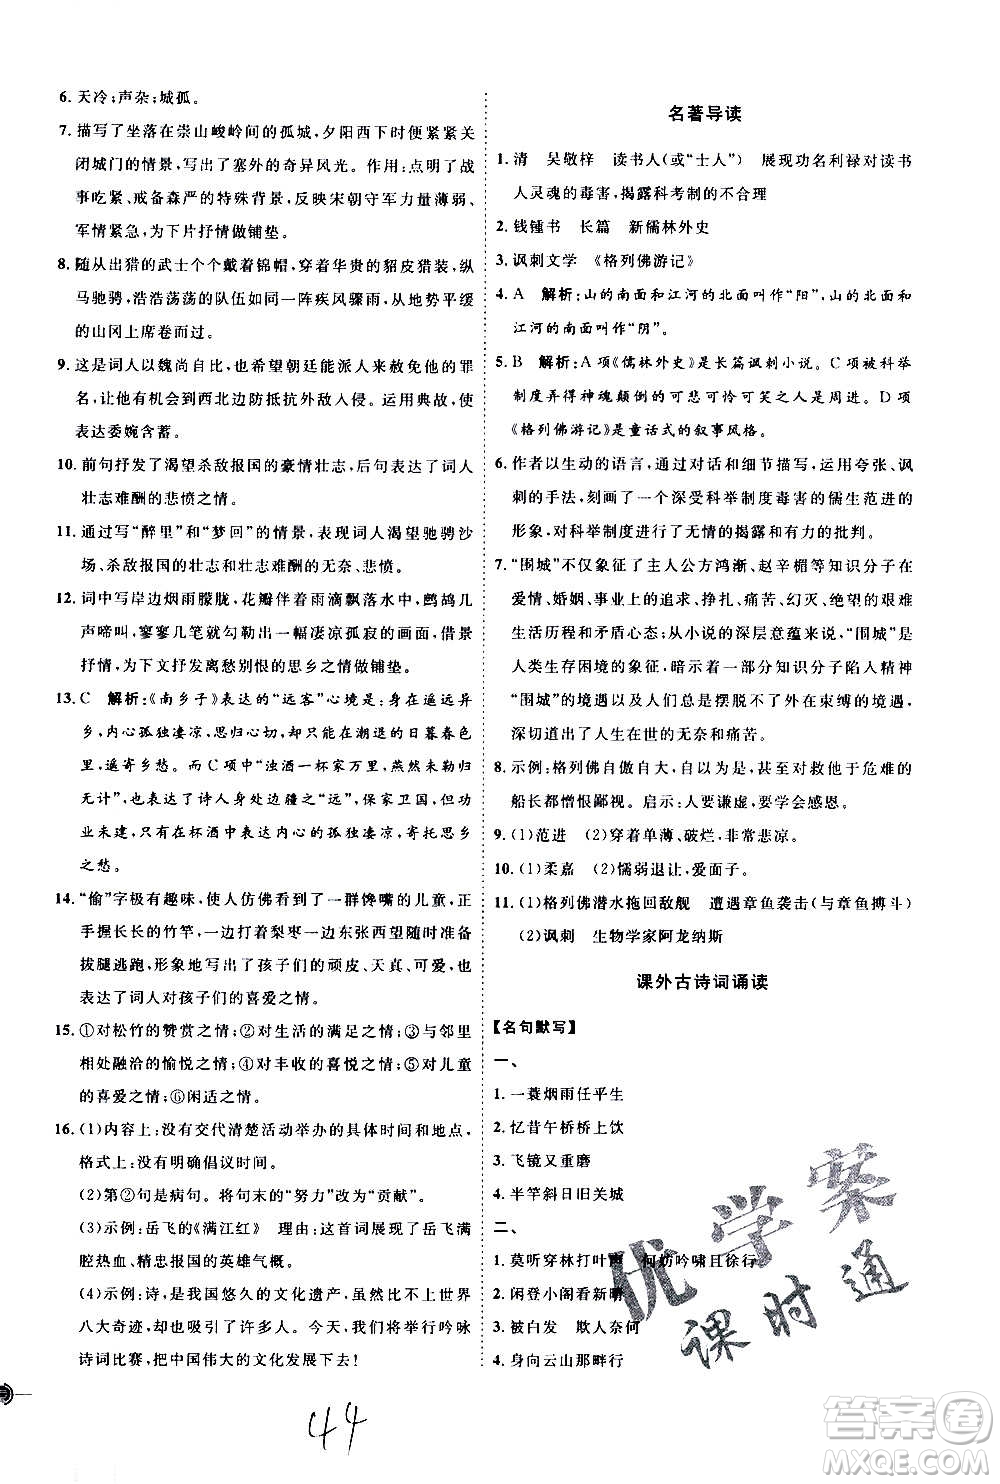 6. 天冷;声杂;城孤。
7. 描写了坐落在崇山峻岭间的孤城,夕阳西下时便紧紧关
闭城门的情景,写出了塞外的奇异风光。作用:点明了战
事吃紧、戒备森严的特殊背景,突出体现宋朝守军力量薄弱、
军情紧急,为下片抒情做铺垫。
8. 随从出猎的武士个个戴着锦帽,穿着华贵的貂皮猎装,纵
马驰骋,浩浩荡荡的队伍如一阵疾风骤雨,从地势平缓
的山冈上席卷而过。
9. 这是词人以魏尚自比,也希望朝廷能派人来赦免他的罪
名,让他有机会到西北边防抵抗外敌入侵。运用典故,使
表达委婉含蓄。
10. 前句抒发了渴望杀敌报国的豪情壮志,后句表达了词人
壮志难酬的悲愤之情。
11. 通过写“醉里”和“梦回”的情景,表现词人渴望驰骋沙
场、杀敌报国的壮志和壮志难酬的无奈、悲愤。
12. 词中写岸边烟雨朦胧,花瓣伴着雨滴飘落水中,鹧鸪几
声啼叫,寥寥几笔就勾勒出一幅凄凉孤寂的画面,借景
抒情,为下文抒发离愁别恨的思乡之情做铺垫。
13. C 解析:《南乡子》表达的“远客”心境是:身在遥远异
乡,内心孤独凄凉,思归心切,只有在潮退的日暮春色
里,遥寄乡愁。而C项中“浊酒一杯家万里,燕然未勒归
无计”,写出了诗人身处边疆之“远”,保家卫国,但功
业未建,只有在杯酒中表达内心的孤独凄凉,寄托思乡
之愁。
14. “偷”字极有趣味,使人仿佛看到了一群馋嘴的儿童,正
手握长长的竹竿,一边打着梨枣一边东张西望随时准备
拔腿逃跑,形象地写出了孩子们的顽皮、天真、可爱,
表达了词人对孩子们的喜爱之情。
15. ①对松竹的赞赏之情;②对生活的满足之情;③与邻里
相处融洽的愉悦之情;④对丰收的喜悦之情;⑤对儿童
的喜爱之情;⑥闲适之情。
16. (1)内容上:没有交代清楚活动举办的具体时间和地点,
格式上:没有明确倡议时间。
(2)第②句是病句。将句末的“努力”改为“贡献”。
(3)示例:岳飞的《满江红》 理由:这首词展现了岳飞满
腔热血、精忠报国的英雄气概。
(4)示例:诗,是我国悠久的文化遗产,它胜过世界
八大奇迹,影响了许多人。今天,我们将举行吟咏
诗词比赛,把中国伟大的文化发展下去!
名著导读
1. 清 吴敬梓 读书人(或“士人”) 展现功名利禄对读书
人灵魂的毒害,揭露科考制的不合理
2. 钱锺书 长篇 新儒林外史
3. 讽刺文学 《格列佛游记》
4. A 解析:山的南面和江河的北面叫作“阳”,山的北面和
江河的南面叫作“阴”。
5. B 解析:A项《儒林外史》是长篇讽刺小说。C项被科举
制度弄得神魂颠倒的可悲可怜可笑之人是周进。D项
《格列佛游记》是童话式的叙事风格。
6. 作者以生动的语言,通过对话和细节描写,运用夸张、讽
刺的手法,刻画了一个深受科举制度毒害的儒生范进的
形象,对科举制度进行了无情的揭露和有力的批判。
7. “围城”不仅象征了主人公方鸿渐、赵辛楣等知识分子在
爱情、婚姻、事业上的追求、挣扎、痛苦、幻灭、绝望的艰难
生活历程和矛盾心态;从小说的深层意蕴来说,“围城”是
人类生存困境的象征,暗示了一部分知识分子陷入精神
“围城”的境遇以及总是摆脱不了种种束缚的人生境遇,
深切道出了人生在世的无奈和痛苦。
8. 示例:格列佛自傲自大,自以为是,甚至对救他于危难的
船长都憎恨鄙视。启示:人要谦虚,要学会感恩。
9. (1)范进 (2)穿着单薄、破烂,非常悲凉。
10. (1)柔嘉 (2)懦弱退让,爱面子。
11. (1)格列佛潜水拖回敌舰 遭遇章鱼袭击(与章鱼搏斗)
(2)讽刺 生物学家阿龙纳斯
课外古诗词诵读
【名句默写】
一、
1. 一蓑烟雨任平生
2. 忆昔午桥桥上饮
3. 飞镜又重磨
4. 半竿斜日旧关城
二、
1. 莫听穿林打叶声 何妨吟啸且徐行
2. 闲登小阁看新晴
3. 被白发 欺人奈何
4. 身向云山那畔行
优学案
课时通
44
答案圈
MXQE.COM